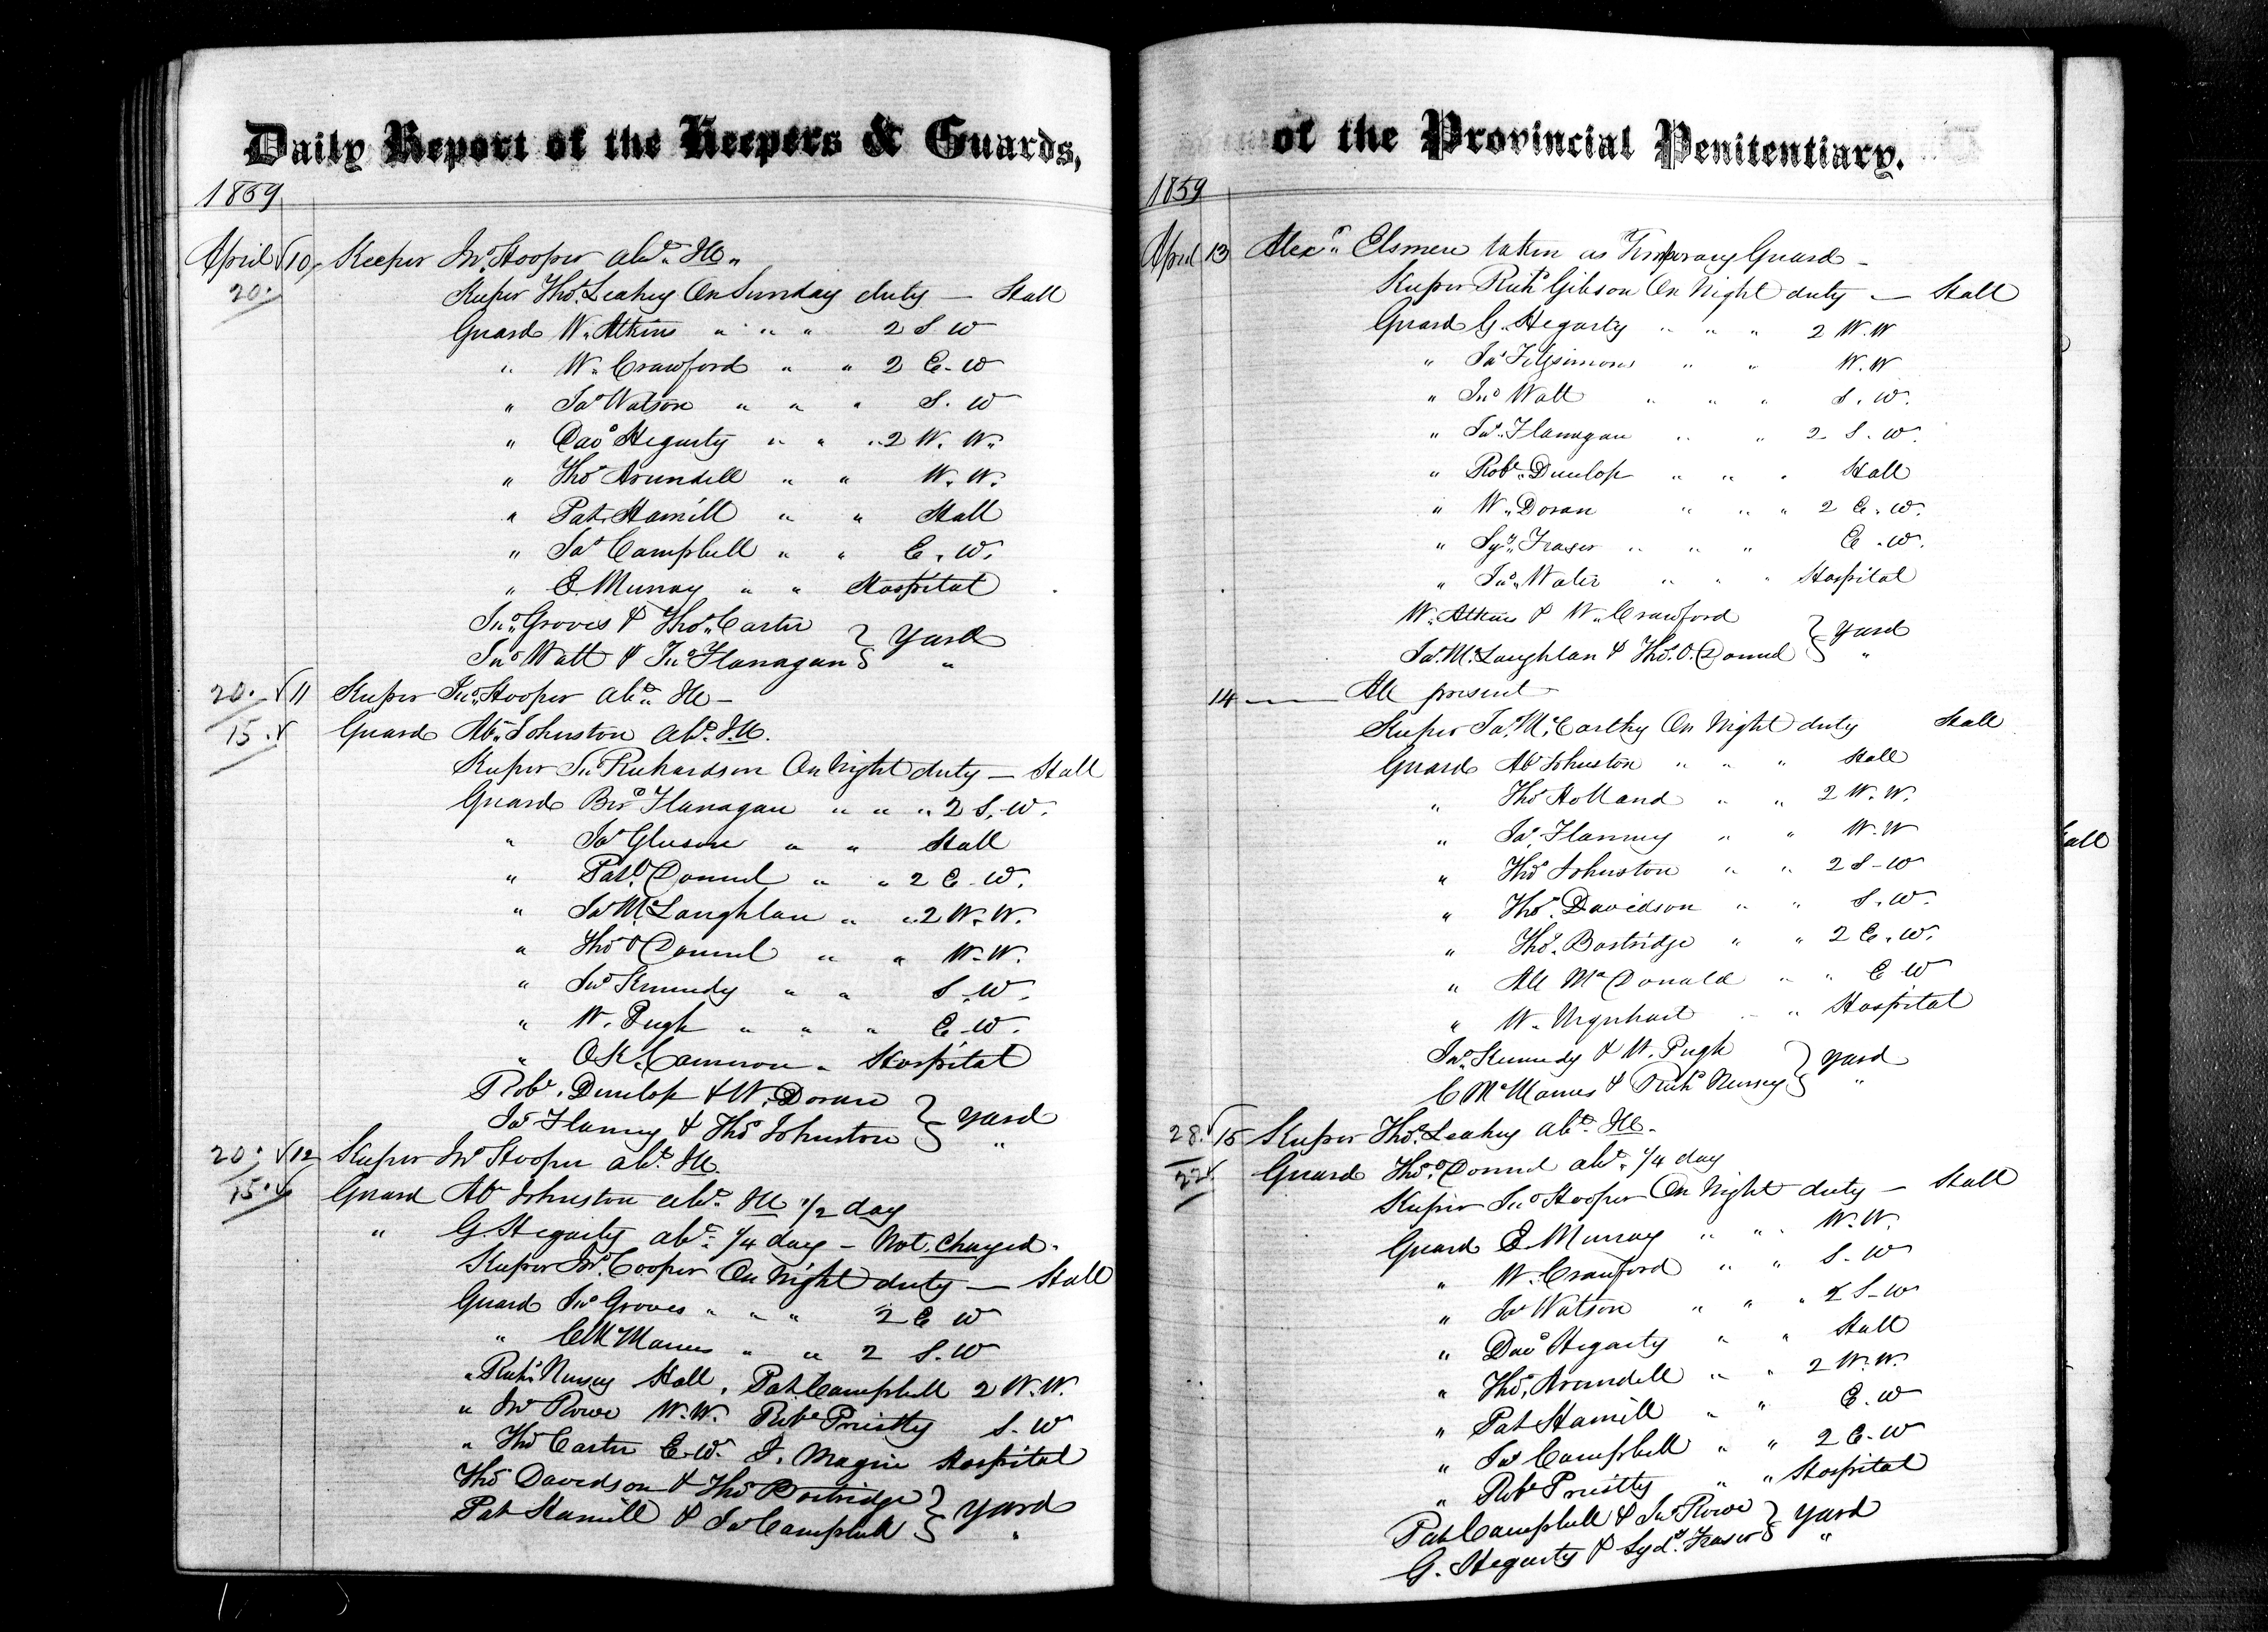 Daily Report of the Keepers & Guards,
1859
April √10, Keeper Jno. Hooper abt. Ill.
20.
Keeper Thos. Leahey On Sunday duty — Hall
Guard W. Atkins " " " 2 S W
" W. Crawford " " 2 E. W
" Jas Watson " " " S. W
" Davd Hegarty " " " 2 W. W.
" Thos Arundell " " W. W.
" Pat. Hamill " " Hall
" Jas Campbell " " E. W.
" E. Murray " " Hospital
Jno. Groves & Thos. Carter } Yard
Jno Watt & Jno Flanagan } "
20. √11 Keeper Jno. Hooper abt. Ill —
15. √ Guard Ab. Johnston abt. Ill.
Keeper Jno Richardson On Night duty — Hall
Guard Bd Flanagan " " " 2 S. W.
" Jas Gleeson " " Hall
" Patk. O Donnel " " 2 E. W.
" Jas McLaughlan " " 2 W. W.
" Thos O Donnel " " W. W.
" Jas Kennedy " " S. W.
" W. Pugh " " " E. W.
" O K. Cameron " Hospital
Robt. Dunlop & W. Doran } Yard
Jas Flannry & Thos Johnston } "
20. √12 Keeper Jno Hooper abt. Ill.
15. √ Guard Ab Johnston abt. Ill 1/2 day
" G. Hegarty abt. 1/4 day — Not Charged.
Keeper Jno. Cooper On Night duty — Hall
Guard Jno Groves " " " 2 E W
" C McManus " " 2 S. W
" Richd. Nursey Hall, Pat. Campbell 2 W. W.
" Jno Rowe W. W. Robt Priestly S. W
" Thos Carter E. W. J. Magin Hospital
Thos Davidson & Thos Bostridge } Yard
Pat Hamill & Jas Campbell } "
of the Provincial Penitentiary.
1859
April 13 Alexr. Elsmere taken as Temporary Guard —
Keeper Richd Gibson On Night duty — Hall
Guard G. Hegarty " " " 2 W. W
" Jas Fitzsimons " " W. W
" Jno Watt " " " S. W.
" Jas. Flanagan " " 2 S. W.
" Robt. Dunlop " " " Hall
" W. Doran " " " 2 E. W.
" Syd. Fraser " " " E. W.
" Jno. Water " " " Hospital
W. Atkins & W. Crawford } Yard
Jas. McLaughlan & Thos. O. Donnel } "
14 — All present
Keeper Jas. McCarthy On Night duty Hall
Guard Ab Johnston " " " Hall
" Thos Holland " " 2 W. W.
" Jas. Flannry " " W. W
" Thos Johnston " " 2 S. W
" Thos. Davidson " " S. W.
" Thos. Bostridge " " 2 E. W.
" All McDonald " " E W
" W. Urquhart " " Hospital
Jas. Kennedy & W. Pugh } Yard
C McManus & Richd Nursey } "
28. √15 Keeper Thos. Leahey abt. Ill.
22 √ Guard Thos. O Donnel abt. 1/4 day
Keeper Jno Hooper On Night duty — Hall
Guard E. Murray " " W. W.
" W. Crawford " " S. W
" Jas Watson " " " 2 S. W
" Davd Hegarty " " Hall
" Thos. Arundell " " 2 W. W.
" Pat Hamill " " E. W
" Jas Campbell " " 2 E. W
" Robt Priestly " " Hospital
Pat Campbell & Jno Rowe } Yard
G. Hegarty & Syd. Fraser } "